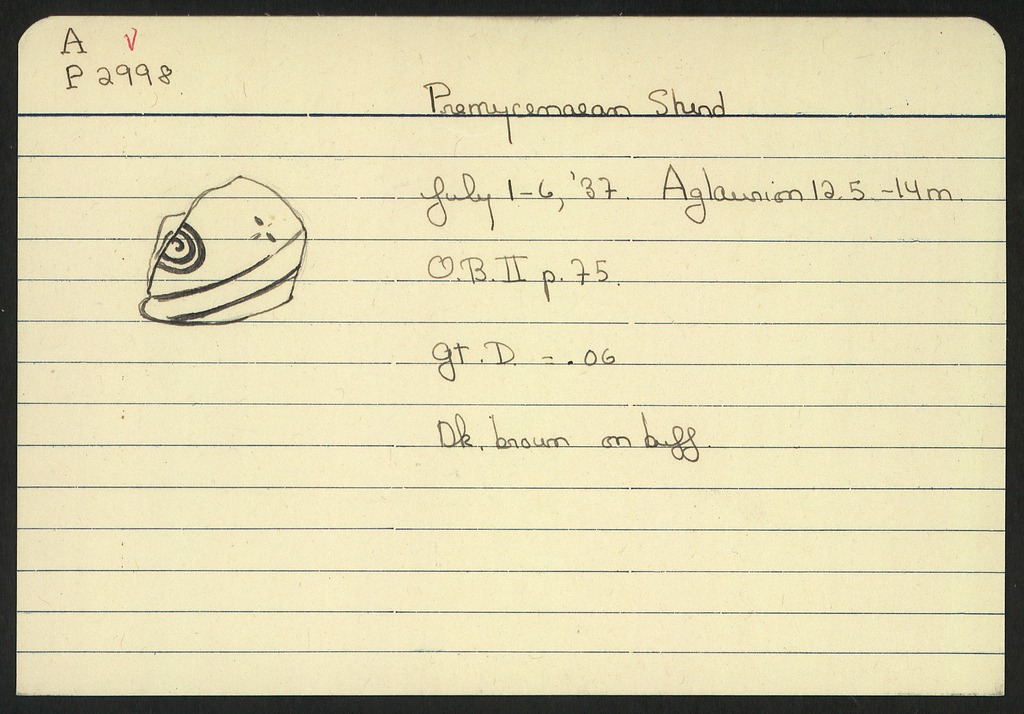 A V
P 2998
Premycenaean Sherd
July 1-6, '37. Aglaurion 12.5 -14m.
O.B. II p. 75.
gt. D. = .06
Dk. brown on buff.